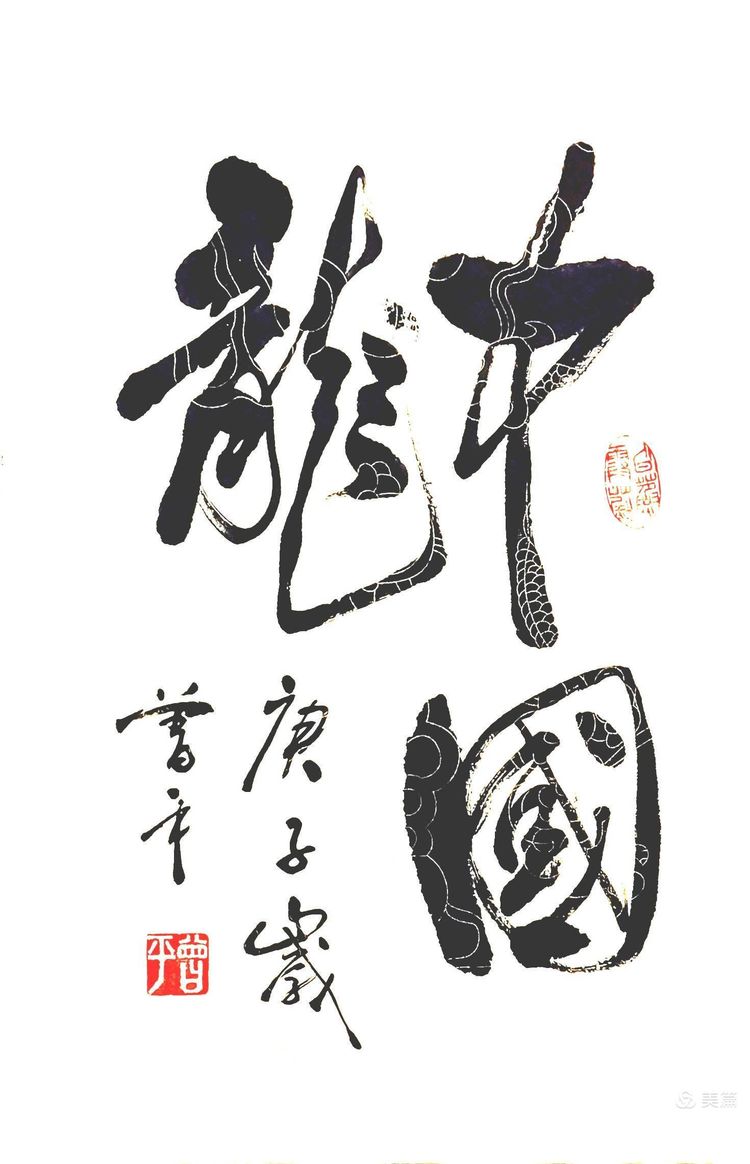 中國
龍
庚子歲
曾平
曾平
美篇